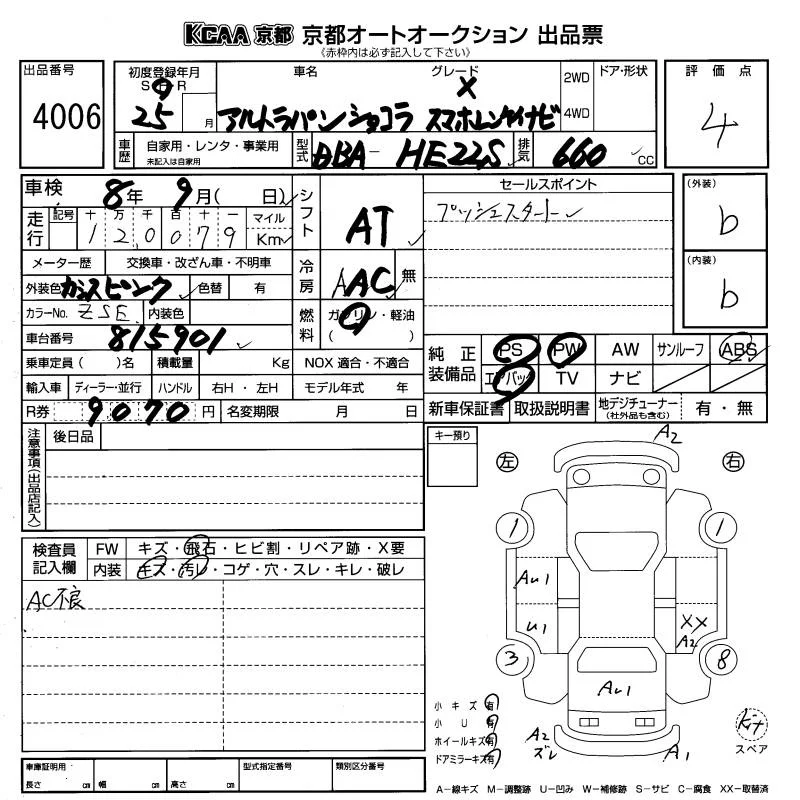 KCAA 京都 京都オートオークション 出品票
《赤枠内は必ず記入して下さい》
出品番号
4006
初度登録年月
S H R
25 月
車名
グレード
X
アルトラパンショコラ スマホレンケイナビ
2WD
4WD
ドア・形状
評価点
4
車歴
自家用・レンタ・事業用
未記入は自家用
型式
DBA-HE22S
排気
660 cc
車検
8年 9月( 日)
シフト
AT
セールスポイント
プッシュスタート
(外装)
b
(内装)
b
走行
記号 十 万 千 百 十 一
1 2 0 0 7 9
マイル
Km
メーター歴
交換車・改ざん車・不明車
冷房
AAC
無
外装色 カシスピンク 色替 有
カラーNo. ZSE 内装色
燃料
ガソリン・軽油
( )
車台番号 815901
乗車定員( )名 積載量 Kg NOX 適合・不適合
純正装備品
PS PW AW サンルーフ ABS
エアバッグ TV ナビ
輸入車 ディーラー・並行 ハンドル 右H・左H モデル年式 年
R券 9070 円 名変期限 月 日
新車保証書 取扱説明書 地デジチューナー(社外品も含む) 有・無
注意事項(出品店記入)
後日品
キー預り
左
右
A2
1
1
AU1
U1
XX
A2
3
8
AU1
A2
ズレ
A1
Kit
スペア
検査員記入欄
FW キズ・飛石・ヒビ割・リペア跡・X要
内装 キズ・汚レ・コゲ・穴・スレ・キレ・破レ
AC不良
小キズ 有
小U 有
ホイールキズ 有
ドアミラーキズ 有
車庫証明用
長さ cm 幅 cm 高さ cm
型式指定番号
類別区分番号
A-線キズ M-調整跡 U-凹み W-補修跡 S-サビ C-腐食 XX-取替済